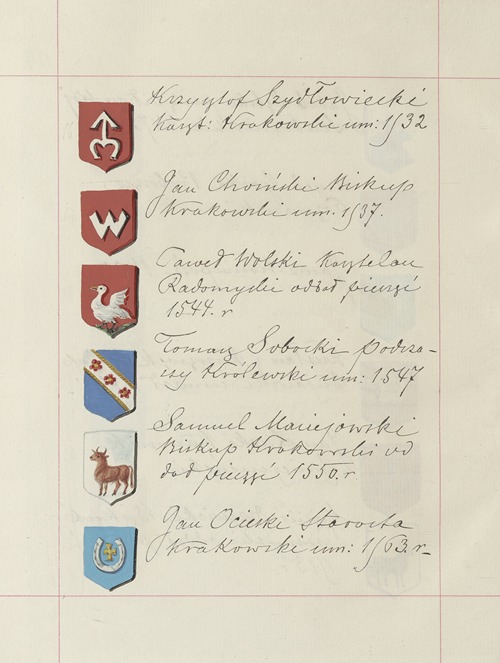 Krzysztof Szydłowiecki
Kaszt: Krakowski um: 1532
Jan Choiński Biskup
Krakowski um. 1537.
Paweł Wolski Kasztelan
Radomyski oddał pieczęć
1544. r
Tomasz Sobocki podcza-
szy Królewski um: 1547
Samuel Maciejowski
Biskup Krakowski od
dał pieczęć 1550. r
Jan Ocieski Starosta
Krakowski um: 1563. r